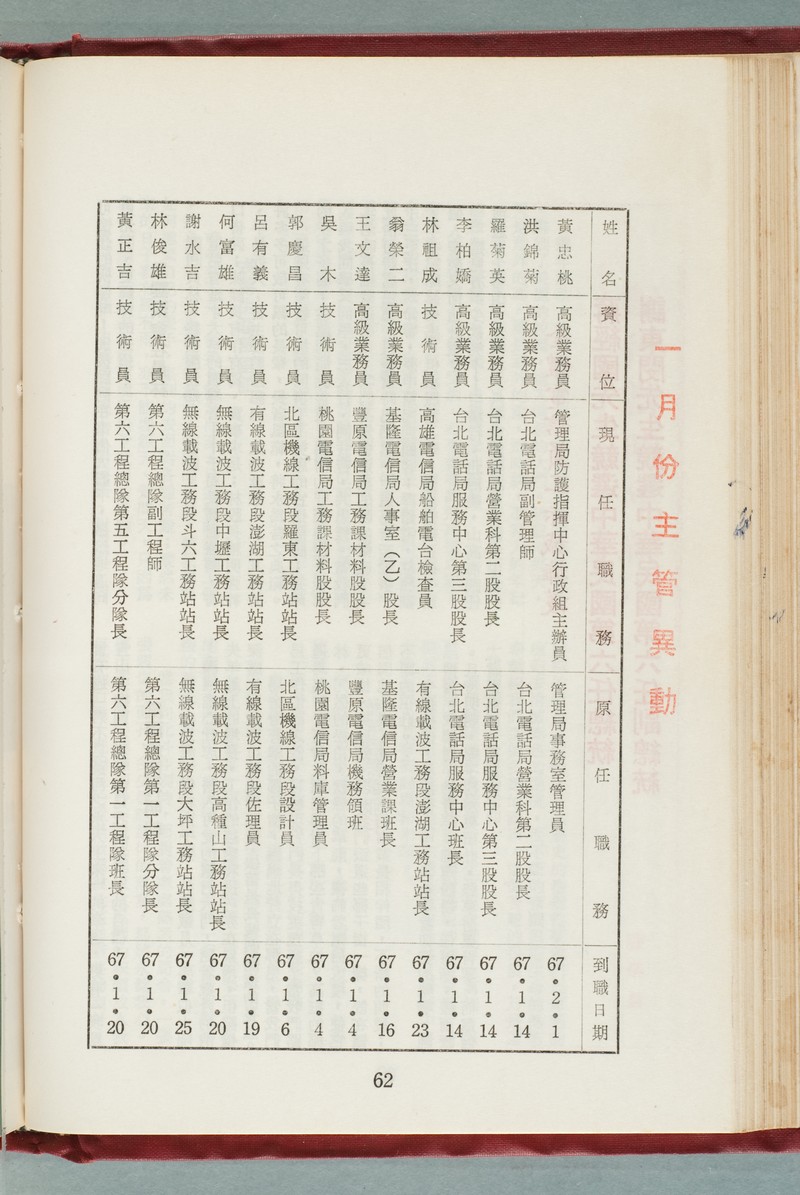 一月份主管異動
姓名 資位 現任職務 原任職務 到職日期
黃忠桃 高級業務員 管理局防護指揮中心行政組主辦員 管理局事務室管理員 67•2•1
洪錦菊 高級業務員 台北電話局副管理師 台北電話局營業科第二股股長 67•1•14
羅菊英 高級業務員 台北電話局營業科第二股股長 台北電話局服務中心第三股股長 67•1•14
李柏嬌 高級業務員 台北電話局服務中心第三股股長 台北電話局服務中心班長 67•1•14
林祖成 技術員 高雄電信局船舶電台檢查員 有線載波工務段澎湖工務站站長 67•1•23
翁榮二 高級業務員 基隆電信局人事室（乙）股長 基隆電信局營業課班長 67•1•16
王文達 高級業務員 豐原電信局工務課材料股股長 豐原電信局機務領班 67•1•4
吳木 技術員 桃園電信局工務課材料股股長 桃園電信局料庫管理員 67•1•4
郭慶昌 技術員 北區機線工務段羅東工務站站長 北區機線工務段設計員 67•1•6
呂有義 技術員 有線載波工務段澎湖工務站站長 有線載波工務段佐理員 67•1•19
何富雄 技術員 無線載波工務段中壢工務站站長 無線載波工務段高種山工務站站長 67•1•20
謝水吉 技術員 無線載波工務段斗六工務站站長 無線載波工務段大坪工務站站長 67•1•25
林俊雄 技術員 第六工程總隊副工程師 第六工程總隊第一工程隊分隊長 67•1•20
黃正吉 技術員 第六工程總隊第五工程隊分隊長 第六工程總隊第一工程隊班長 67•1•20
62